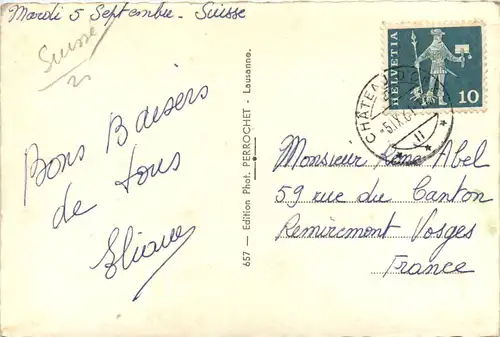 Mardi 5 Septembre - Suisse
Suisse
Bons Baisers
de tous
Eliane
657 — Edition Phot. PERROCHET - Lausanne.
HELVETIA
10
CHÂTEAU
Monsieur René Abel
59 rue du Canton
Remiremont Vosges
France